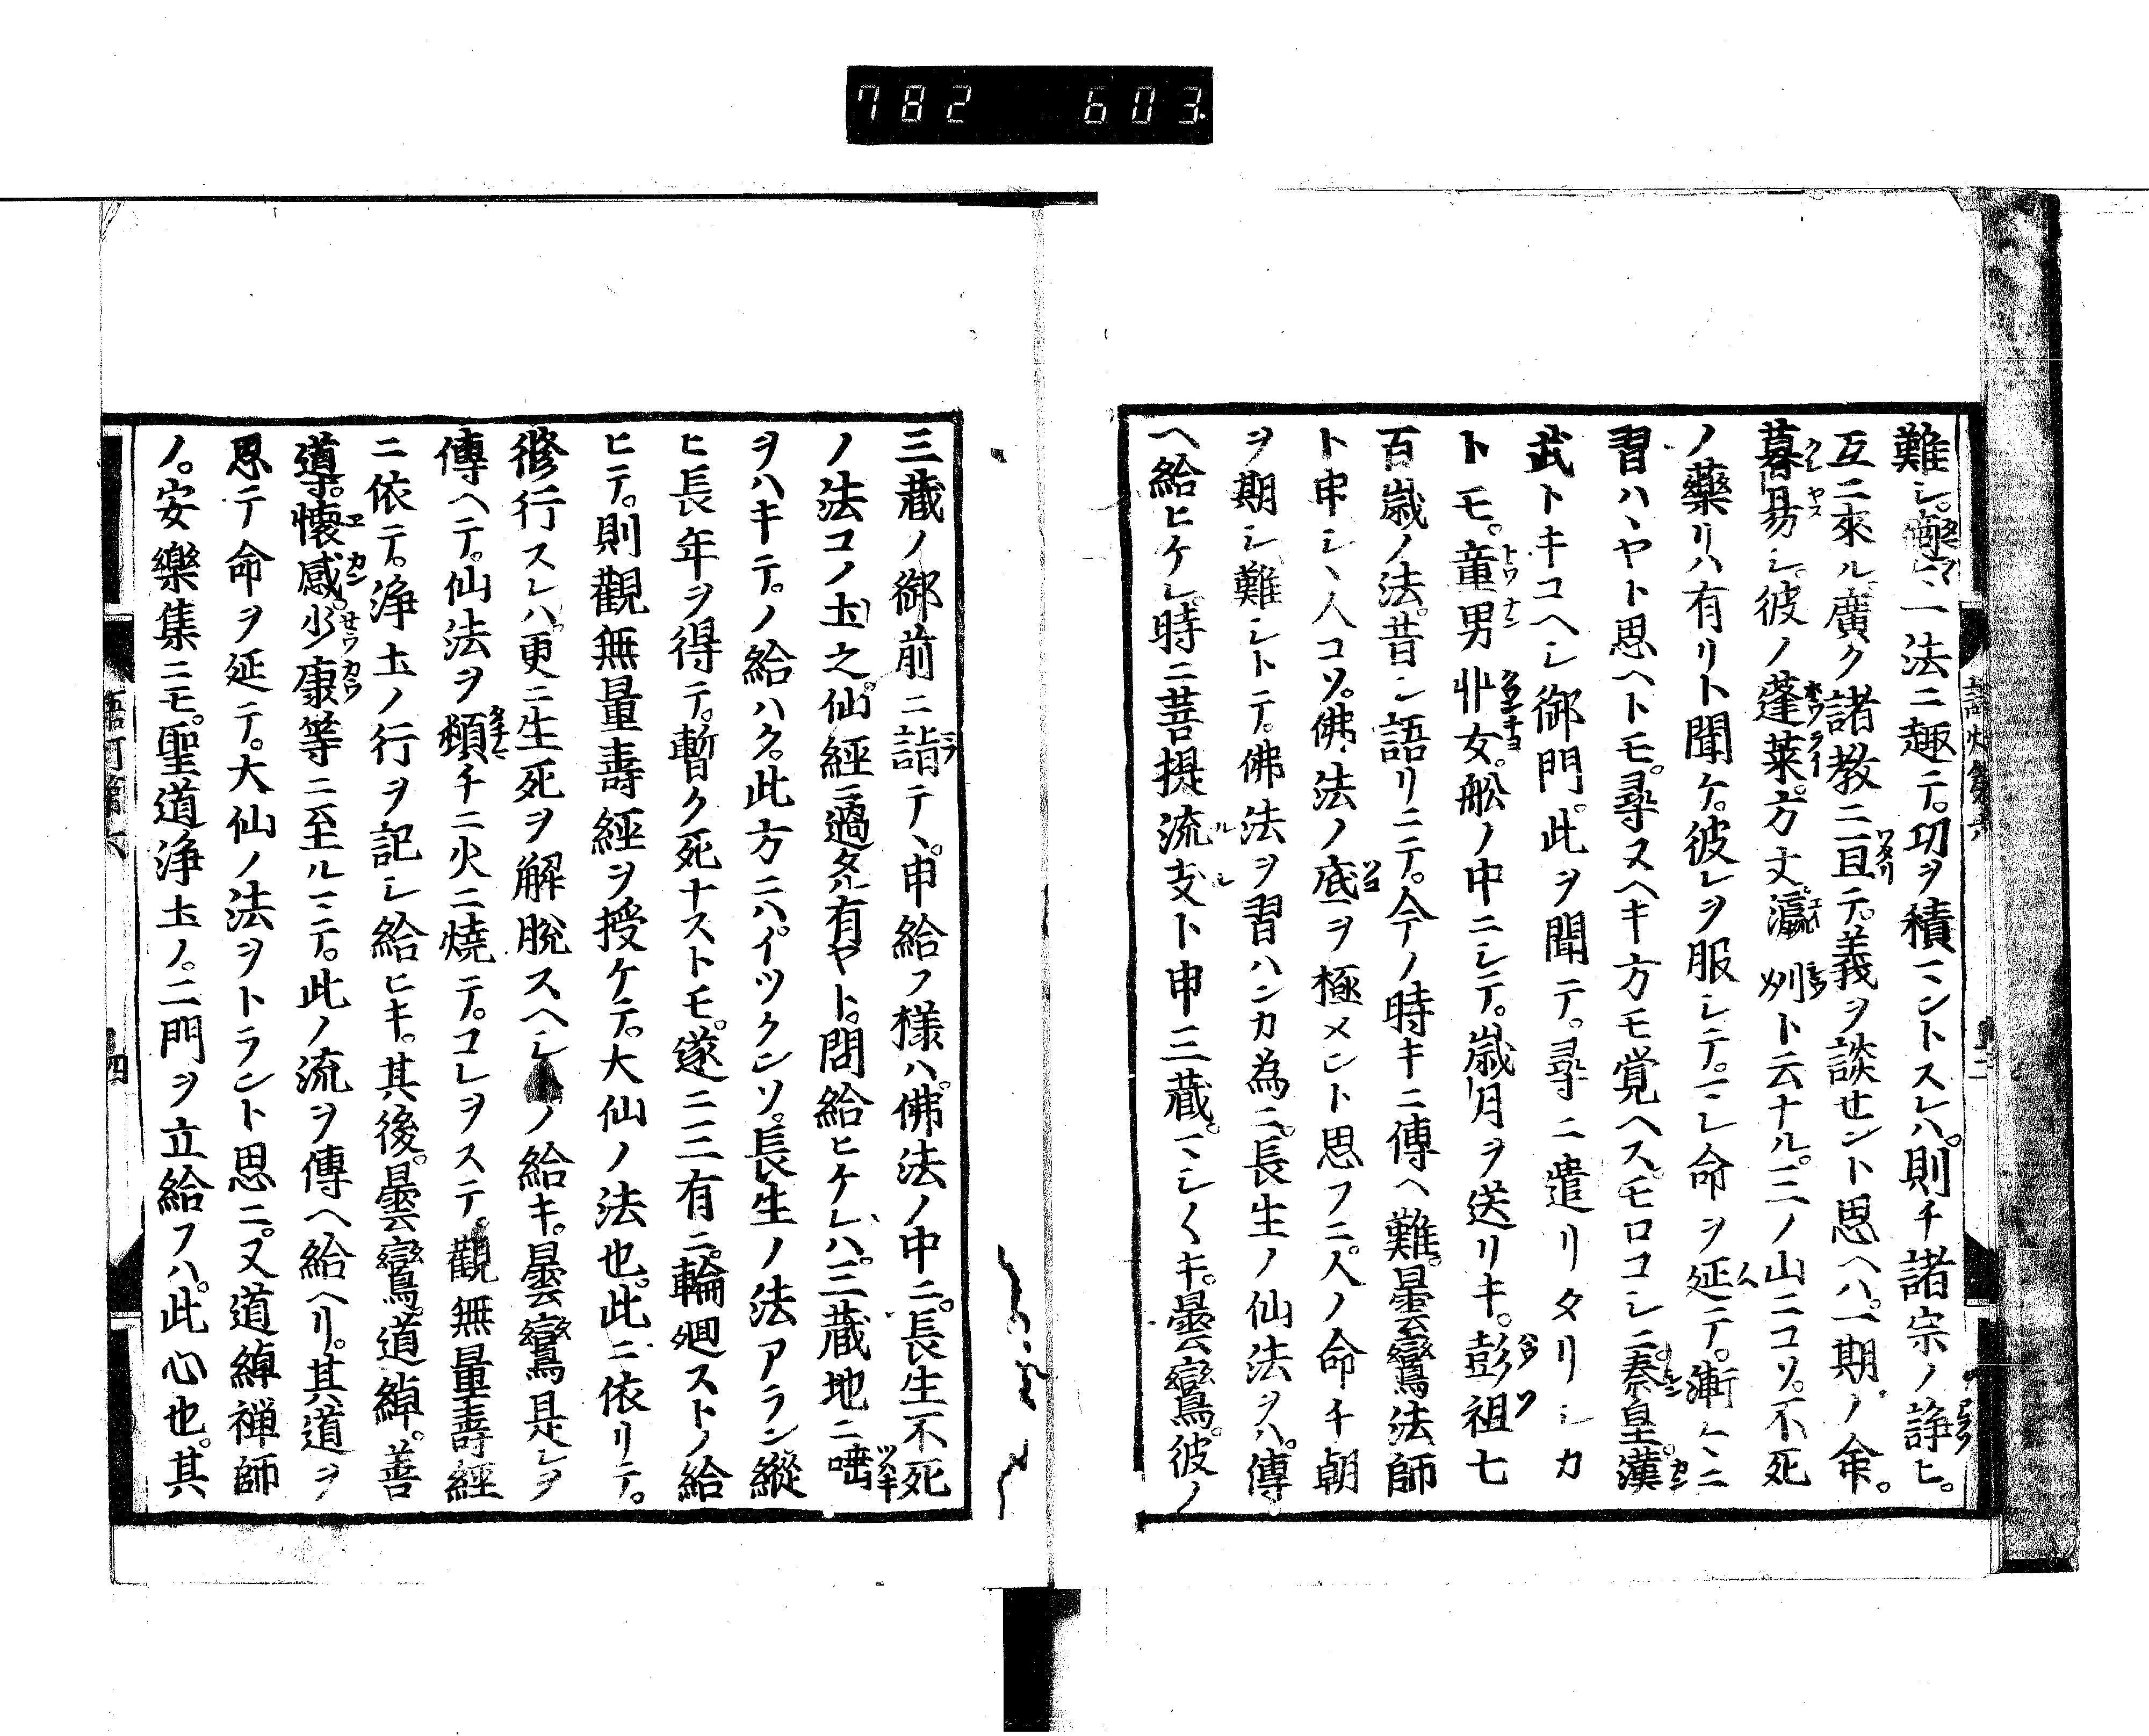 782 603
難シ。適マ〻一法ニ趣テ。功ヲ積マントスレハ。則チ諸宗ノ諍ヒ。
互ニ來ル。廣ク諸教ニ亘テ。義ヲ談セント思ヘハ。一期ノ命。
暮易シ。彼ノ蓬萊。方丈。瀛州ト云ナル。三ノ山ニコソ。不死
ノ藥リハ有リト聞ケ。彼レヲ服シテ。マレ命ヲ延テ。漸々ニ
習ハヽヤト思ヘトモ。尋ヌヘキ方モ覚ヘス。モロコシニ秦皇。漢
武トキコヘシ御門。此ヲ聞テ。尋ニ遣リタリシカ
トモ。童男丱女。舩ノ中ニシテ。歳月ヲ送リキ。彭祖七
百歳ノ法。昔シ語リニテ。今ノ時キニ傳ヘ難。曇鸞法師
ト申シヽ人コソ。佛法ノ底ヲ極メント思フニ。人ノ命チ朝
ヲ期シ難シトテ。佛法ヲ習ハンカ為ニ。長生ノ仙法ヲハ。傳
ヘ給ヒケレ。時ニ菩提流支ト申三蔵。マシ〱キ。曇鸞。彼ノ
三蔵ノ御前ニ詣テヽ。申給フ様ハ。佛法ノ中ニ。長生不死
ノ法コノ土之仙經ニ過タル有ヤト。問給ヒケレハ。三蔵地ニ唾
ヲハキテ。ノ給ハク。此方ニハ。イツクンソ。長生ノ法アラン縱
ヒ長年ヲ得テ。暫ク死ナストモ。遂ニ三有ニ。輪廻ストノ給
ヒテ。則觀無量壽經ヲ授ケテ。大仙ノ法也。此ニ依リテ。
修行スレハ。更ニ生死ヲ解脱スヘシトノ給キ。曇鸞是レヲ
傳ヘテ。仙法ヲ頽チニ火ニ燒テ。コレヲステ。觀無量壽經
ニ依テ。浄土ノ行ヲ記シ給ヒキ。其後。曇鸞。道綽。善
導。懷感。少康等ニ至ルマテ。此ノ流ヲ傳ヘ給ヘリ。其道ヲ
思テ命ヲ延テ。大仙ノ法ヲトラント思ニ。又道綽禅師
ノ。安樂集ニモ。聖道浄土ノ。二門ヲ立給フハ。此心也。其